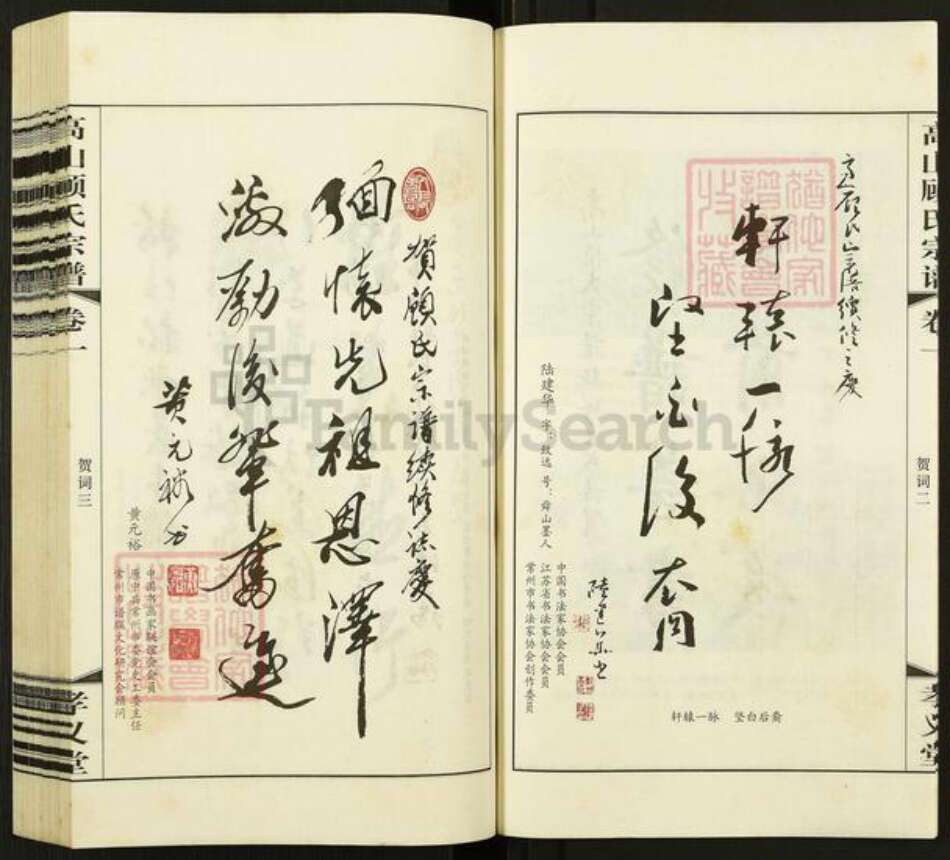 高山顾氏宗谱 卷一
贺词二
孝义堂
顾氏宗谱续修之庆
軒轅一脉
堅白後裔
陸建华书
陆建华 字：致远 号：舜山墨人
中国书法家协会会员
江苏省书法家协会会员
常州市书法家协会创作委员
轩辕一脉 坚白后裔
賀顧氏宗譜續修誌慶
緬懷先祖恩澤
激勵後輩奮進
黄元裕书
黄元裕
中国书画家联谊会会员
原中共常州市委党史工委主任
常州市谱牒文化研究会顾问
高山顾氏宗谱 卷一
贺词三
孝义堂
FamilySearch